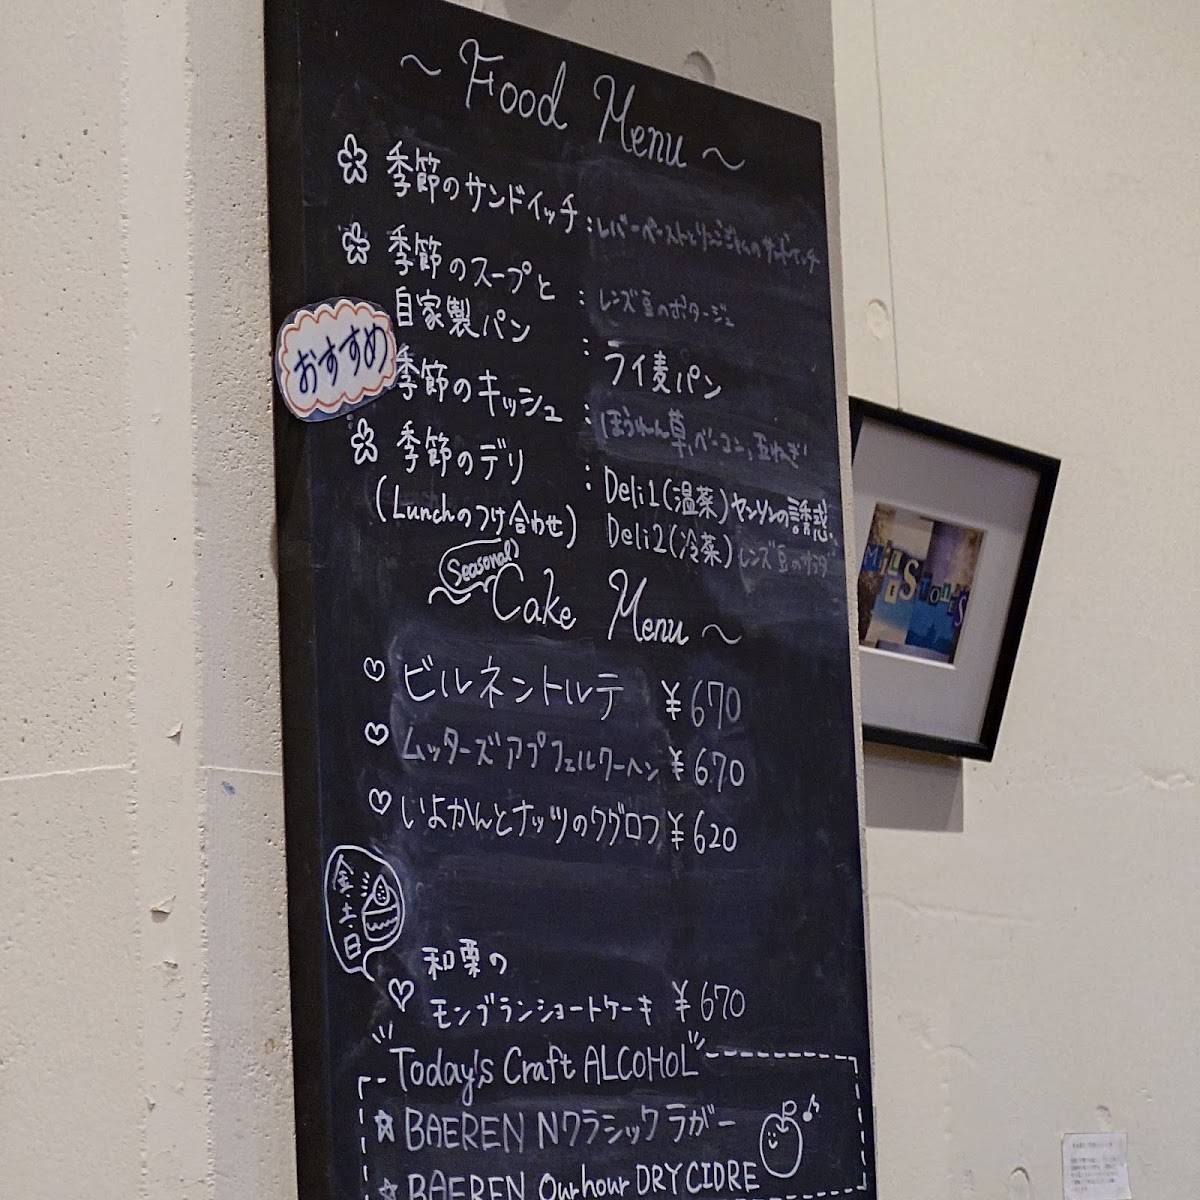 ~ Food Menu ~
季節のサンドイッチ : レバーペーストとリンゴジャムのサンドイッチ
季節のスープと : レンズ豆のポタージュ
自家製パン : ライ麦パン
おすすめ
季節のキッシュ : ほうれん草,ベーコン,玉ねぎ
季節のデリ : Deli1(温菜)ヤンソンの誘惑
(Lunchのつけ合わせ) Deli2(冷菜)レンズ豆のサラダ
Seasonal
Cake Menu ~
ビルネントルテ ¥670
ムッターズアプフェルクーヘン ¥670
いよかんとナッツのクグロフ ¥620
金・土・日
和栗の
モンブランショートケーキ ¥670
Today's Craft ALCOHOL
BAEREN Nクラシックラガー
BAEREN Our hour DRY CIDRE
MILESTONES